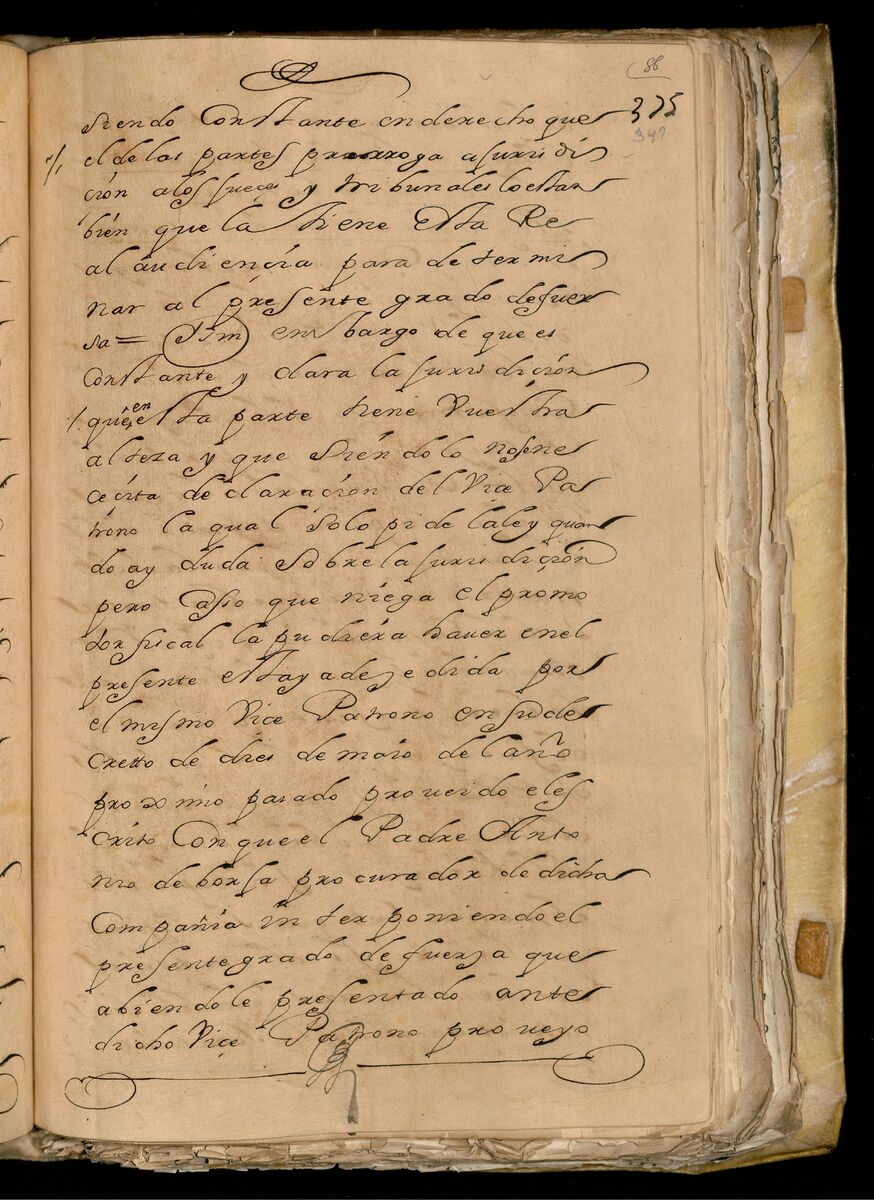 86
375
347
siendo Constante en derecho que
el de las partes prorroga a jurisdi
ción a los jueces y tribunales lo estan
bien que la tiene esta Re
al audiencia para determi
nar al presente grado de fuer
sa = Sim embargo de que es
Constante y clara la jurisdición
que en esta parte tiene Vuestra
alteza y que siéndolo no se ne
cecita declaración del Vice Pa
trono la qual solo pide la ley quan
do ay duda sobre la jurisdición
pero Caso que niega el promo
tor fiscal la pudiera haver en el
presente esta ya desedida por
el mismo Vice Patrono en su de
cretto de dies de maio del año
proximo pasado proveido el es
crito Con que el Padre Anto
nio de borja procurador de dicha
Compañia interponiendo el
presente grado de fuersa que
abiendole presentado ante
dicho Viçe Patrono proveyo